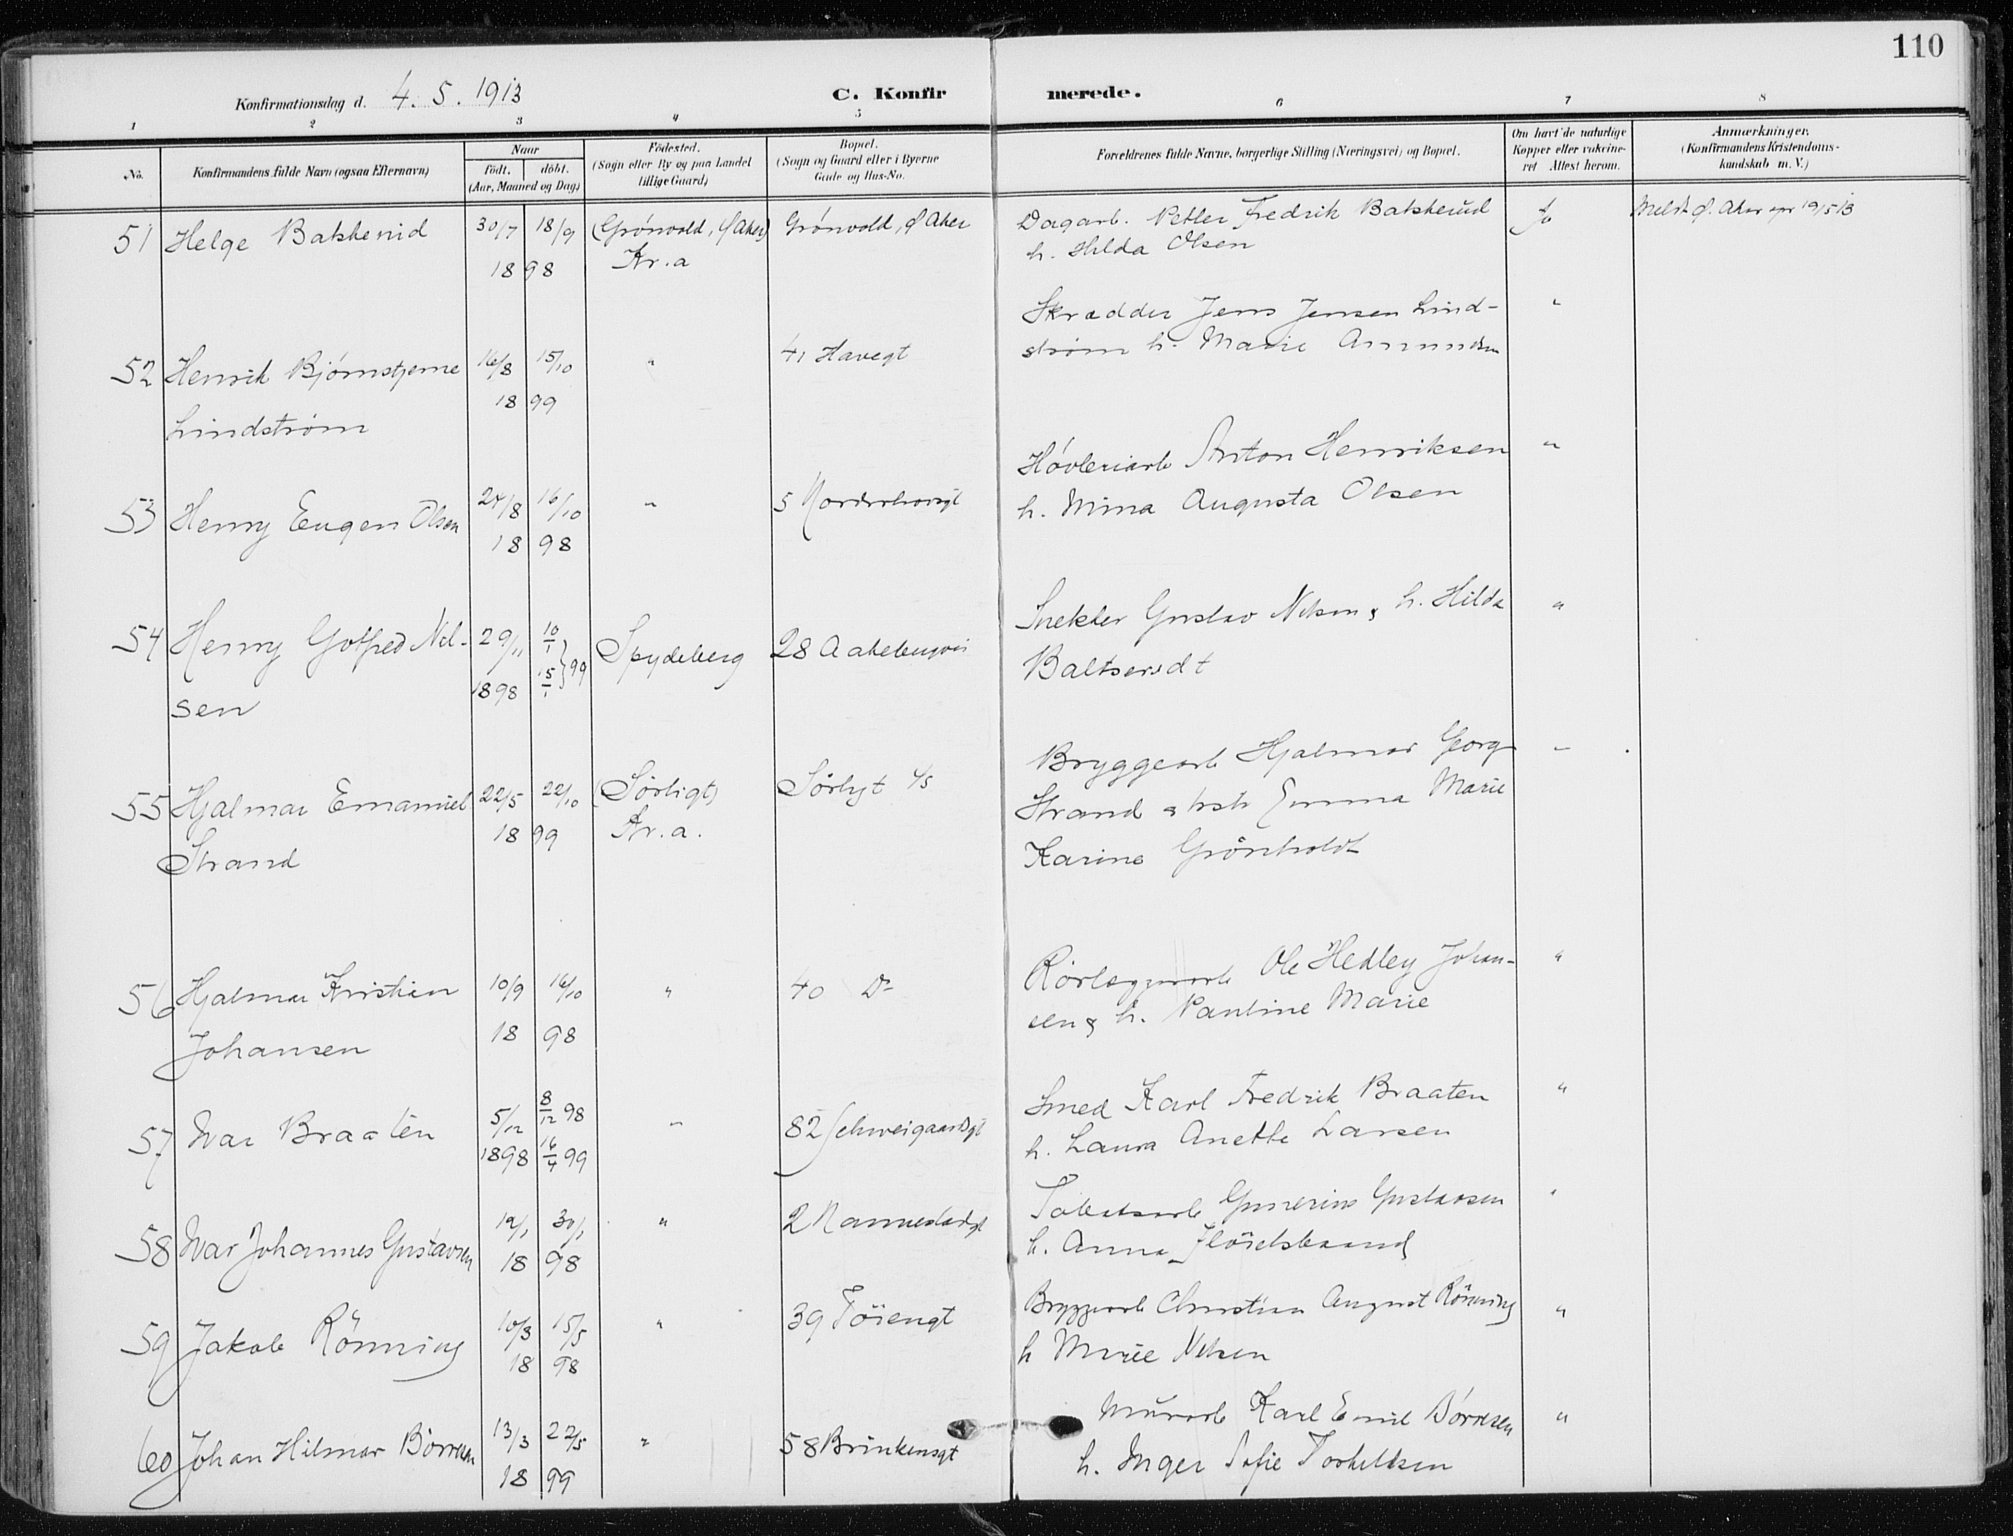 110
Konfirmationsdag d. 4. 5. 1913
C. Konfirmerede.
1 2 3 4 5 6 7 8
No.
Konfirmandens fulde Navn (ogsaa Efternavn)
Naar
født. døbt.
(Aar, Maaned og Dag)
Fødested.
(Sogn eller By og paa Landet
tillige Gaard)
Bopæl.
(Sogn og Gaard eller i Byerne
Gade og Hus-No.
Forældrenes fulde Navne, borgerlige Stilling (Næringsvei) og Bopæl.
Om havt de naturlige
Kopper eller vakcine-
ret Attest herom.
Anmærkninger.
(Konfirmandens Kristendoms-
kundskab m. V.)
51 Helge Bakkerud 30/7 18/9 (Grönvold, Ø Aker) Grönvold, Ø Aker Dagarb. Petter Fredrik Bakkerud Meldt Ø. Aker 19/5 13
1898 Kr.a h. Hilda Olsen
Skrædder Jens Jensen Lind- "
52 Henrik Bjørnstjerne 16/8 15/10 " 41 Havegt strøm h. Marie Amundsen
Lindstrøm 18 99
Høvleriarb Anton Henriksen "
53 Henry Eugen Olsen 24/8 16/10 " 5 Norderhovsgt h. Mina Augusta Olsen
18 98
Snekker Gustav Nilsen & h. Hilda "
54 Henry Gotfred Nil- 29/11 10/1 Spydeberg 28 Aakebergvei Baltsersdt
sen 1898 15/1 } 99
Bryggearb Hjalmar Georg "
55 Hjalmar Emanuel 22/5 22/10 (Sörligt) Sörligt 45 Strand & hst Emma Marie
Strand 18 99 Kr.a. Karine Grönholdt
Rörlæggerarb Ole Hedley Johan- "
56 Hjalmar Kristian 10/9 16/10 " 40 Do sen & h. Pauline Marie
Johansen 18 98
57 Ivar Braaten 5/12 8/12 98 " 82 Schweigaardsgt Smed Karl Fredrik Braaten "
1898 16/4 99 h. Laura Anette Larsen
58 Ivar Johannes Gustavsen 12/1 30/1 " 2 Nannestadgt Tobaksarb Gunerius Gustavsen "
18 98 h. Anna
59 Jakob Rönning 10/3 15/5 " 39 Töiengt Bryggearb Christian August Rönning "
18 98 h Marie Nilsen
60 Johan Hilmar Börresen 13/3 22/5 " 58 Brinkensgt Murarb Karl Emil Børresen "
18 99 h. Inger Sofie Torkildsen